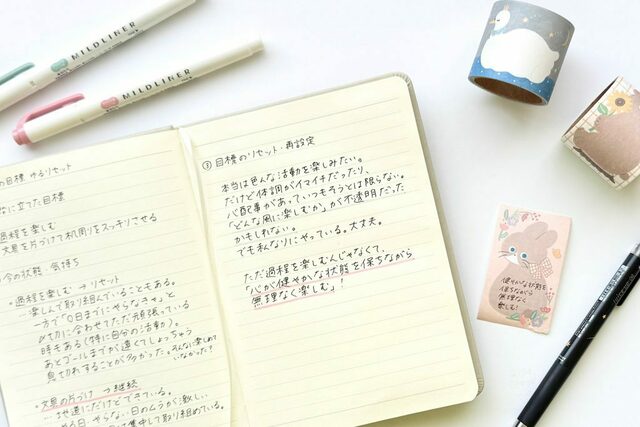 MILDLINER
MILDLINER
の目標 ゆるリセット
に立てた目標
過程を楽しむ
文具を片づけて机周りをスッキリさせる
今の状態 気持ち
・過程を楽しむ → リセット
…楽しんで取り組んでいることもある。
一方で「〇日までにやらなきゃ」と
〆切に合わせてただ頑張っている
時もある(特に自分の活動)。
あとゴールまでが遠くてしょっちゅう
息切れすることが多かった。そんなに楽しめて
いなかった?
・文具の片づけ → 継続
…地道にだけどできている。
やる日・やらない日のムラが激しい
集中して取り組めている。
③ 目標のリセット・再設定
本当は色んな活動を楽しみたい。
だけど体調がイマイチだったり、
心配事があっていつもそうとは限らない。
「どんな風に楽しむか」が不透明だった
かもしれない。
でも私なりにやっている。大丈夫。
ただ過程を楽しむんじゃなくて、
「心が健やかな状態を保ちながら
無理なく楽しむ」!
健やかな状態
を保ちながら
無理なく
楽しむ!